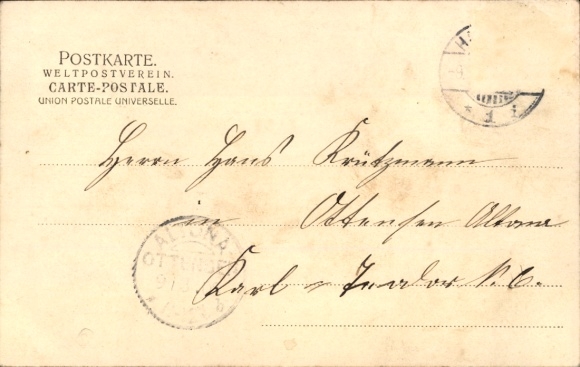 POSTKARTE.
WELTPOSTVEREIN.
CARTE-POSTALE.
UNION POSTALE UNIVERSELLE.
Herrn Hans Krützmann
in Ottensen Altona
ALTONA
OTTENSEN
Karl - Teodor